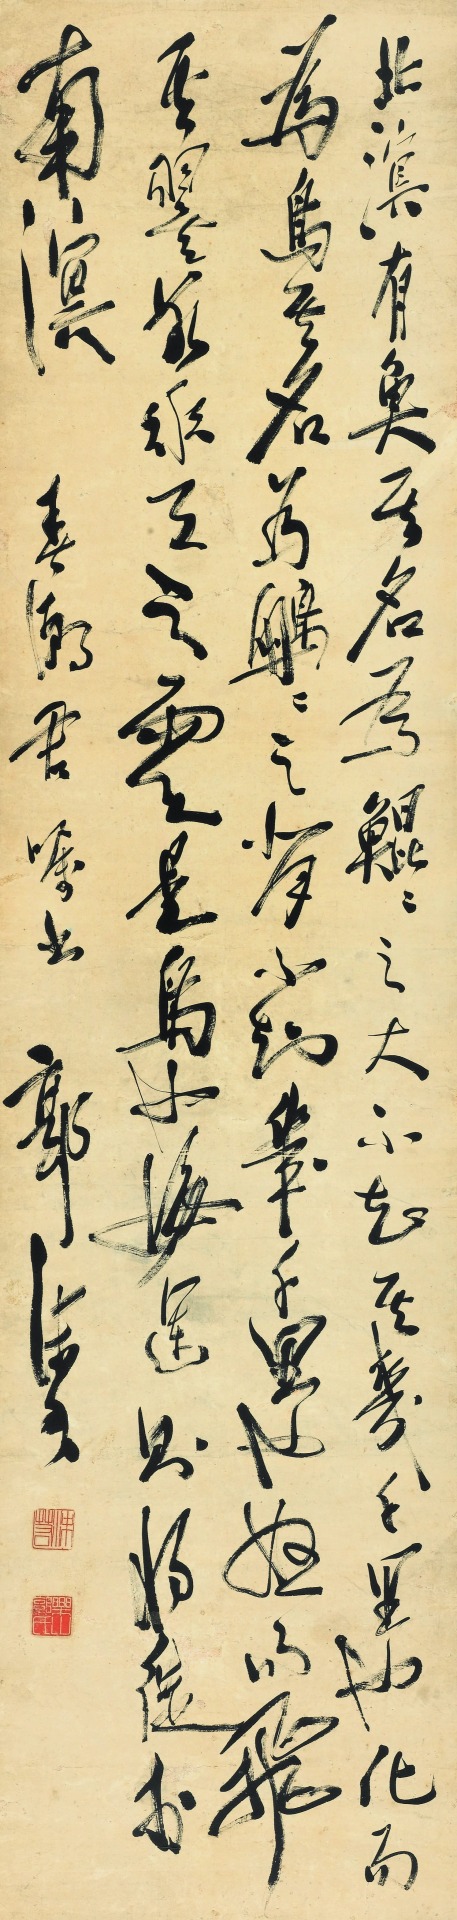 北溟有魚其名為鯤々之大不知其幾千里也化而
為鳥其名為鵬々之背不知幾千里也怒而飛
其翼若垂天之雲是鳥也海運則將徙於
南溟
春潮君嘱書 郭沫若